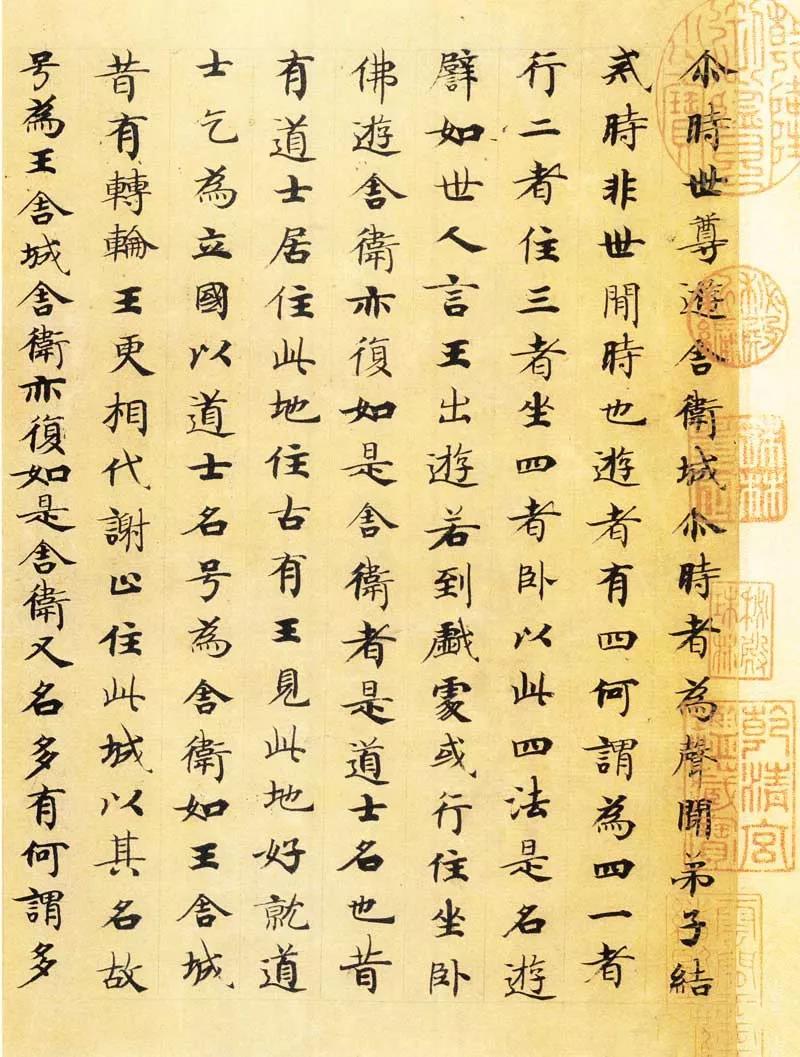 秘殿新編
秘殿珠林
乾清宮鑒藏寶
尒時世尊遊舍衛城尒時者為聲聞弟子結
戒時非世間時也遊者有四何謂為四一者
行二者住三者坐四者卧以此四法是名遊
譬如世人言王出遊若到戲處或行住坐卧
佛遊舍衛亦復如是舍衛者是道士名也昔
有道士居住此地住古有王見此地好就道
士乞為立國以道士名号為舍衛如王舍城
昔有轉輪王更相代謝止住此城以其名故
号為王舍城舍衛亦復如是舍衛又名多有何謂多